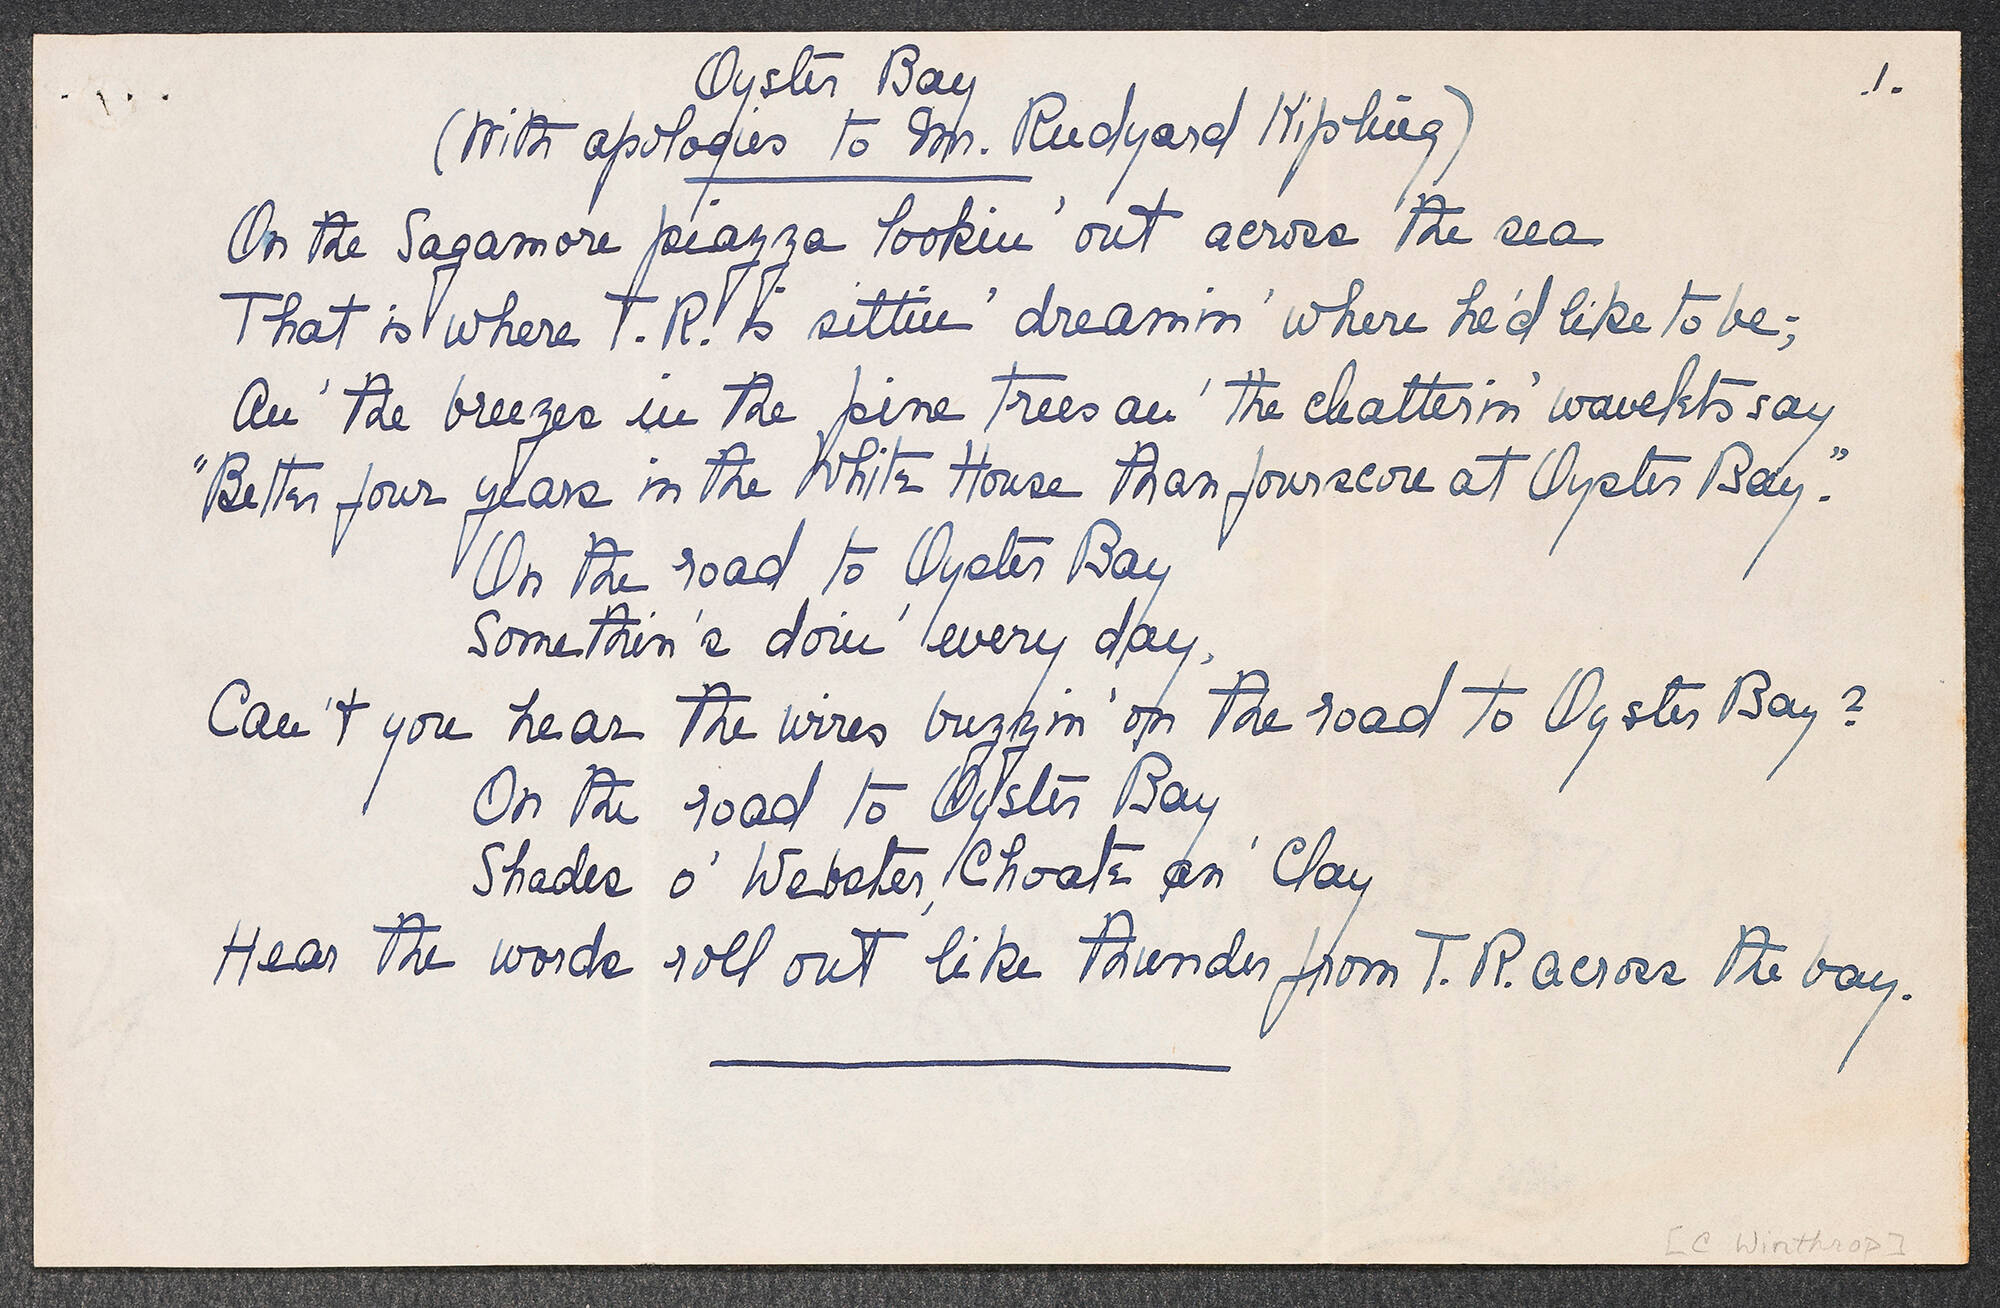 Oyster Bay
.1.
(With apologies to Mr. Rudyard Kipling)
On the Sagamore piazza lookin' out across the sea
That is where T. R. is sittin' dreamin' where he'd like to be;
An' the breezes in the pine trees an' the chatterin' wavelets say
"Better four years in the White House than fourscore at Oyster Bay."
On the road to Oyster Bay
Somethin's doin' every day,
Can't you hear the wires buzzin' on the road to Oyster Bay?
On the road to Oyster Bay
Shades o' Webster, Choate an' Clay
Hear the words roll out like thunder from T. R. across the bay.
[C Winthrop]